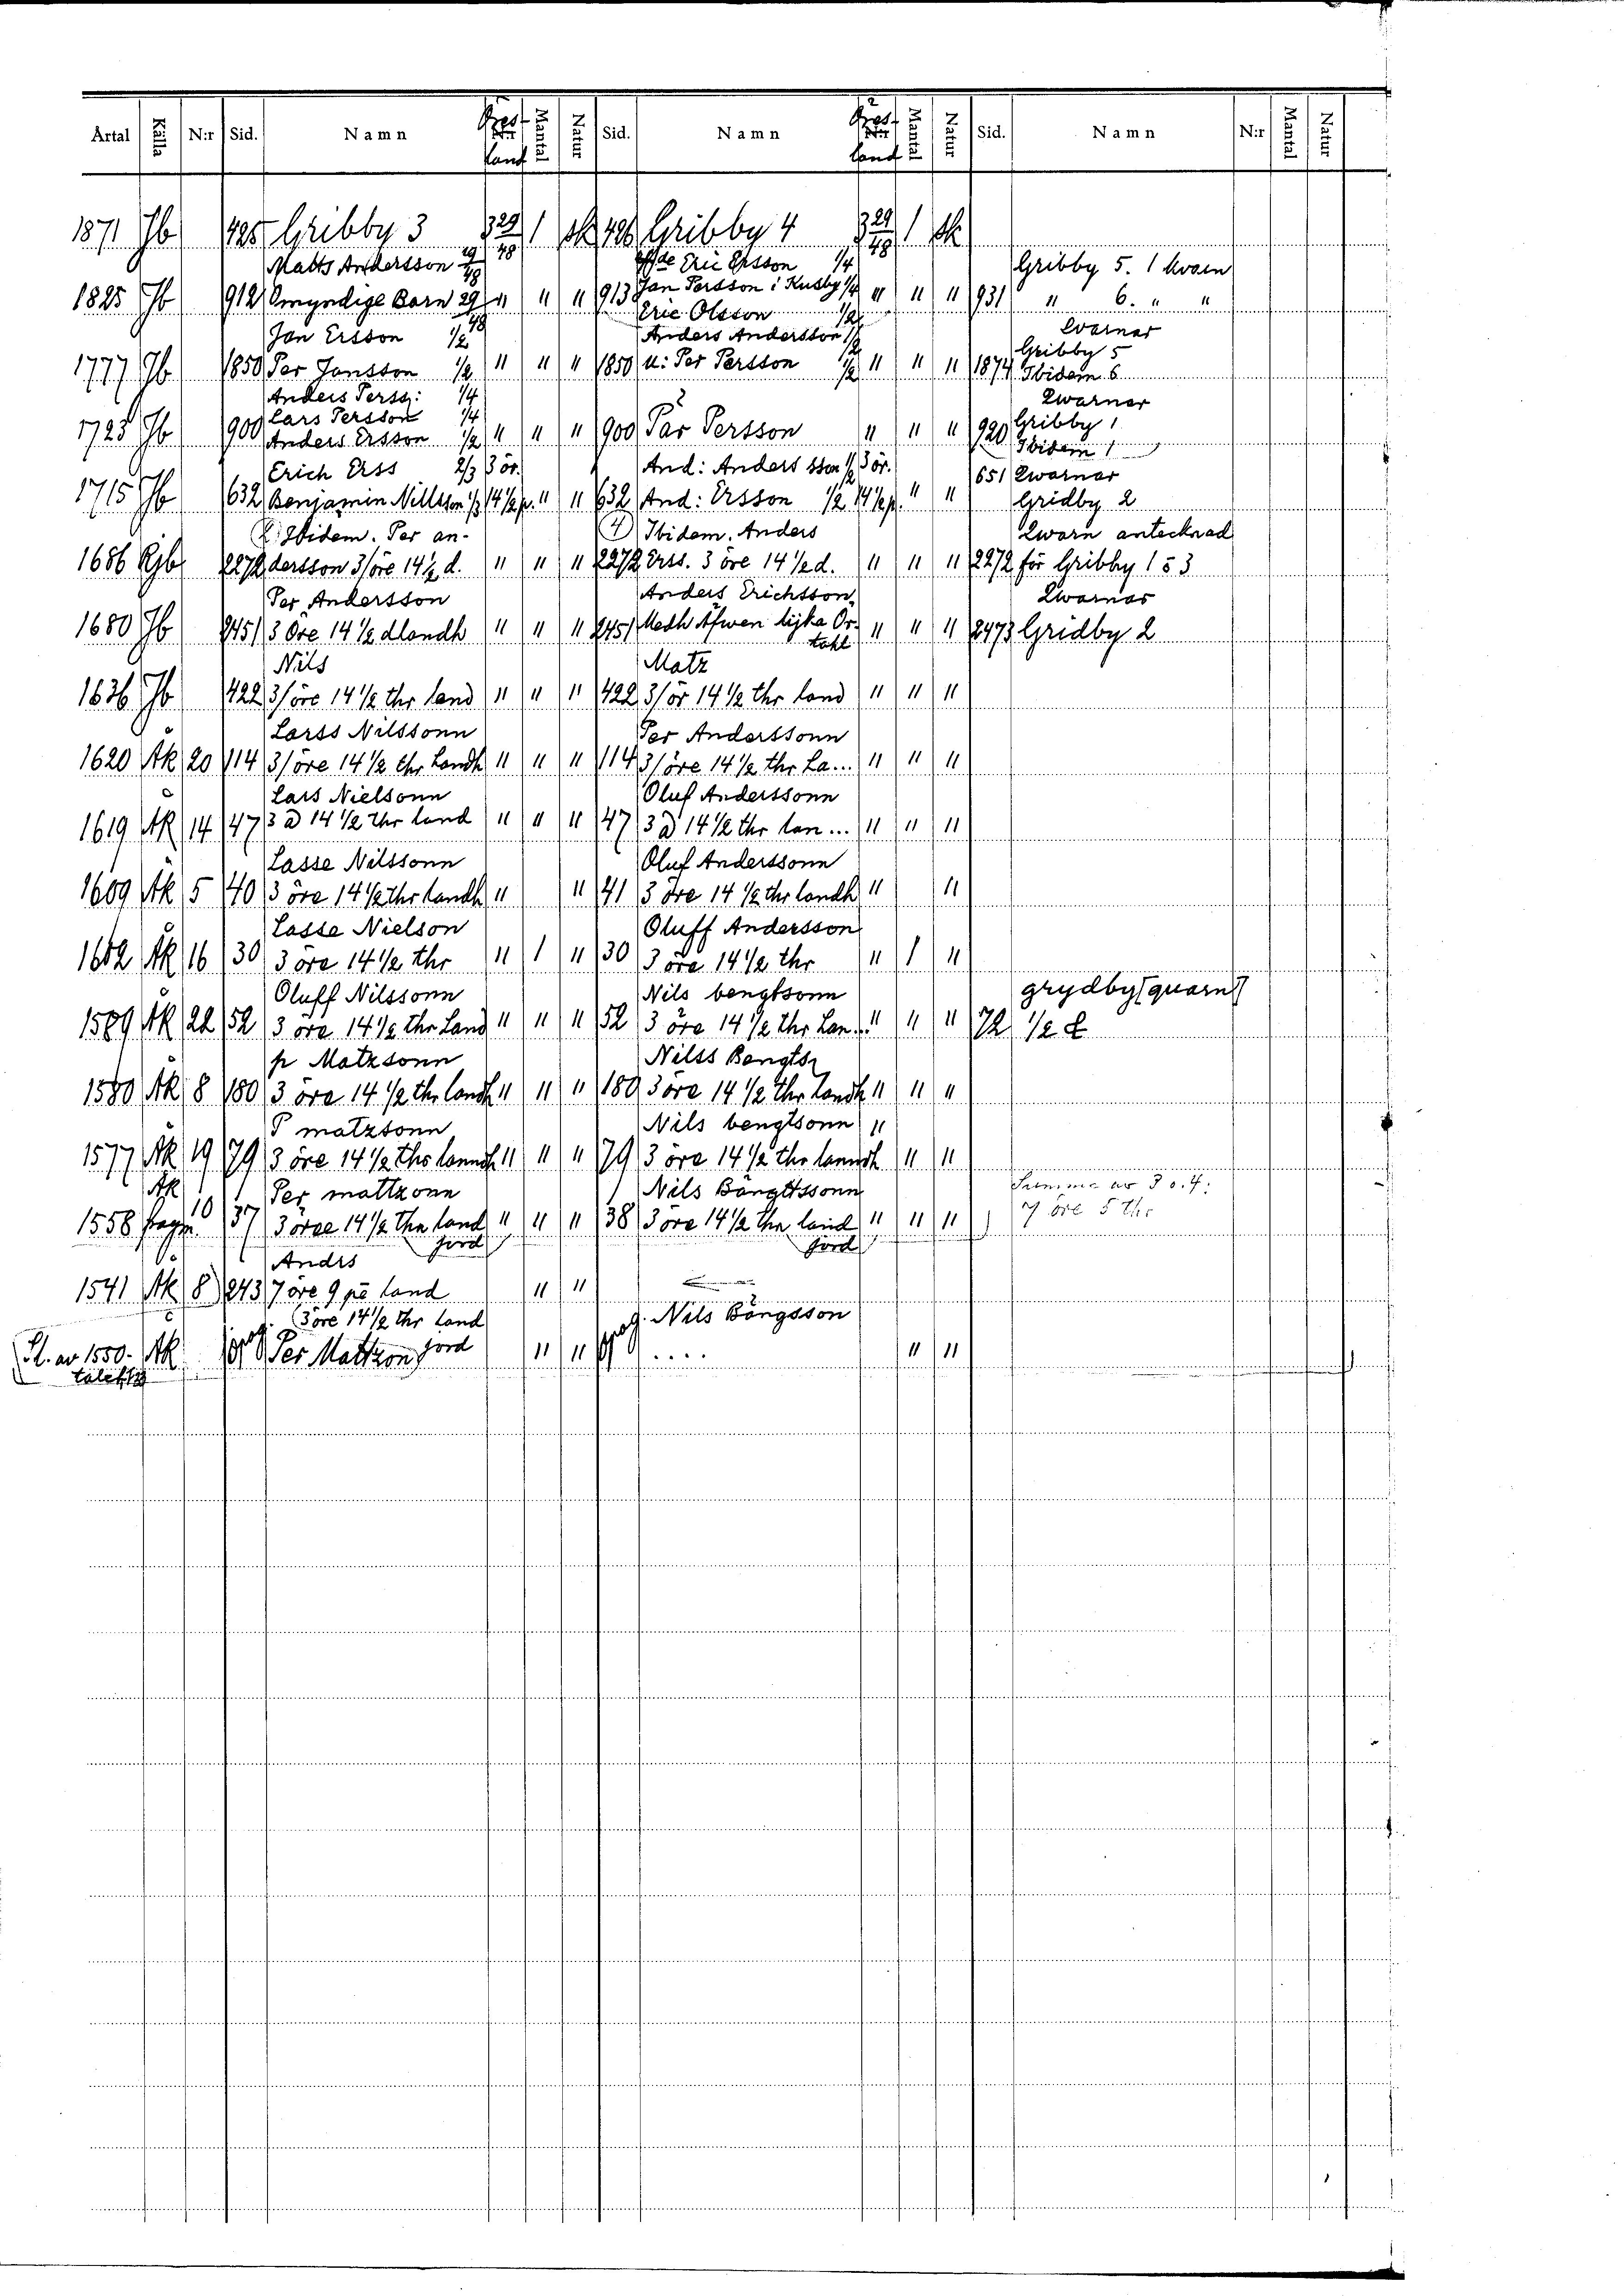 Årtal Källa N:r Sid. Namn land Mantal Natur Sid. Namn land Mantal Natur Sid. Namn N:r Mantal Natur
1871 Jb 425 Gribby 3 3 29/48 1 sk 426 Gribby 4 3 29/48 1 sk
Matts Andersson 19/48 Eric Ersson 1/4 Gribby 5. 1 kvarn
1825 Jb 912 Omyndige Barn 29/48 " " " 913 Jan Persson i Kusby 1/4 " " " 931 " 6. " "
Eric Olsson 1/2
Jan Ersson 1/2 Anders Andersson 1/2 Qvarnar
1777 Jb 1850 Per Jansson 1/2 " " " 1850 u: Per Persson 1/2 " " " 1874 Gribby 5
Ibidem 6
Anders Perss: 1/4 Qwarnar
1725 Jb 900 Lars Persson 1/4 " " " 900 Pär Persson " " " 920 Gribby 1
Anders Ersson 1/2 Ibidem 1
Erich Erss 2/3 3 ör. And: Andersson 1/2 3 ör. 651 Qwarnar
1715 Jb 632 Benjamin Nillsson 1/3 14 1/2 p. " " 632 And: Ersson 1/2 14 1/2 p. " " Gridby 2
Ibidem. Per an- 4 Ibidem. Anders Qwarn antecknad
1686 Rjb 2272 dersson 3/öre 14 1/2 d. " " " 2272 Erss. 3 öre 14 1/2 d. " " " 2272 för Gribby 1 o 3
Per Andersson Anders Erichsson, Qwarnar
1680 Jb 2451 3 Öre 14 1/2 dlandh " " " 2451 Medh Äfwen lijka Ör- " " " 2473 Gridby 2
tahl
Nils Matz
1636 Jb 422 3/öre 14 1/2 thr land " " " 422 3/ör 14 1/2 thr land " " "
Larss Nilssonn Per Anderssonn
1620 Äk 20 114 3/öre 14 1/2 thr Landh " " " 114 3/öre 14 1/2 thr La... " " "
Lars Nielsonn Oluf Anderssonn
1619 Äk 14 47 3 a 14 1/2 thr land " " " 47 3 a 14 1/2 thr lan ... " " "
Lasse Nilssonn Oluf Anderssonn
1609 Äk 5 40 3 öre 14 1/2 thr landh " " 41 3 öre 14 1/2 thr landh " "
Lasse Nielson Oluff Andersson
1602 Äk 16 30 3 öre 14 1/2 thr " 1 " 30 3 öre 14 1/2 thr " 1 "
Oluff Nilssonn Nils bengtsonn grydby [quarn]
1589 Äk 22 52 3 öre 14 1/2 thr Land " " " 52 3 öre 14 1/2 thr Lan.. " " " 72 1/2 £
p Matzsonn Nilss Bengts
1580 Äk 8 180 3 öre 14 1/2 thr landh " " " 180 3 öre 14 1/2 thr landh " " "
P matzsonn Nils bengtsonn "
1577 Äk 19 79 3 öre 14 1/2 thr lanndh " " " 79 3 öre 14 1/2 thr lanndh " "
Äk Per mattzonn Nils Bängttssonn Summa av 3 o. 4:
1558 fragm. 10 37 3 öree 14 1/2 thn land " " " 38 3 öre 14 1/2 thn land " " " 7 öre 5 thr
jord jord
Andrs
1541 Äk 8 243 7 öre 9 pe land " "
3 öre 14 1/2 thr land Nils Bängsson
Sl. av 1550- Äk Per Mattzon jord " " .... " "
talet